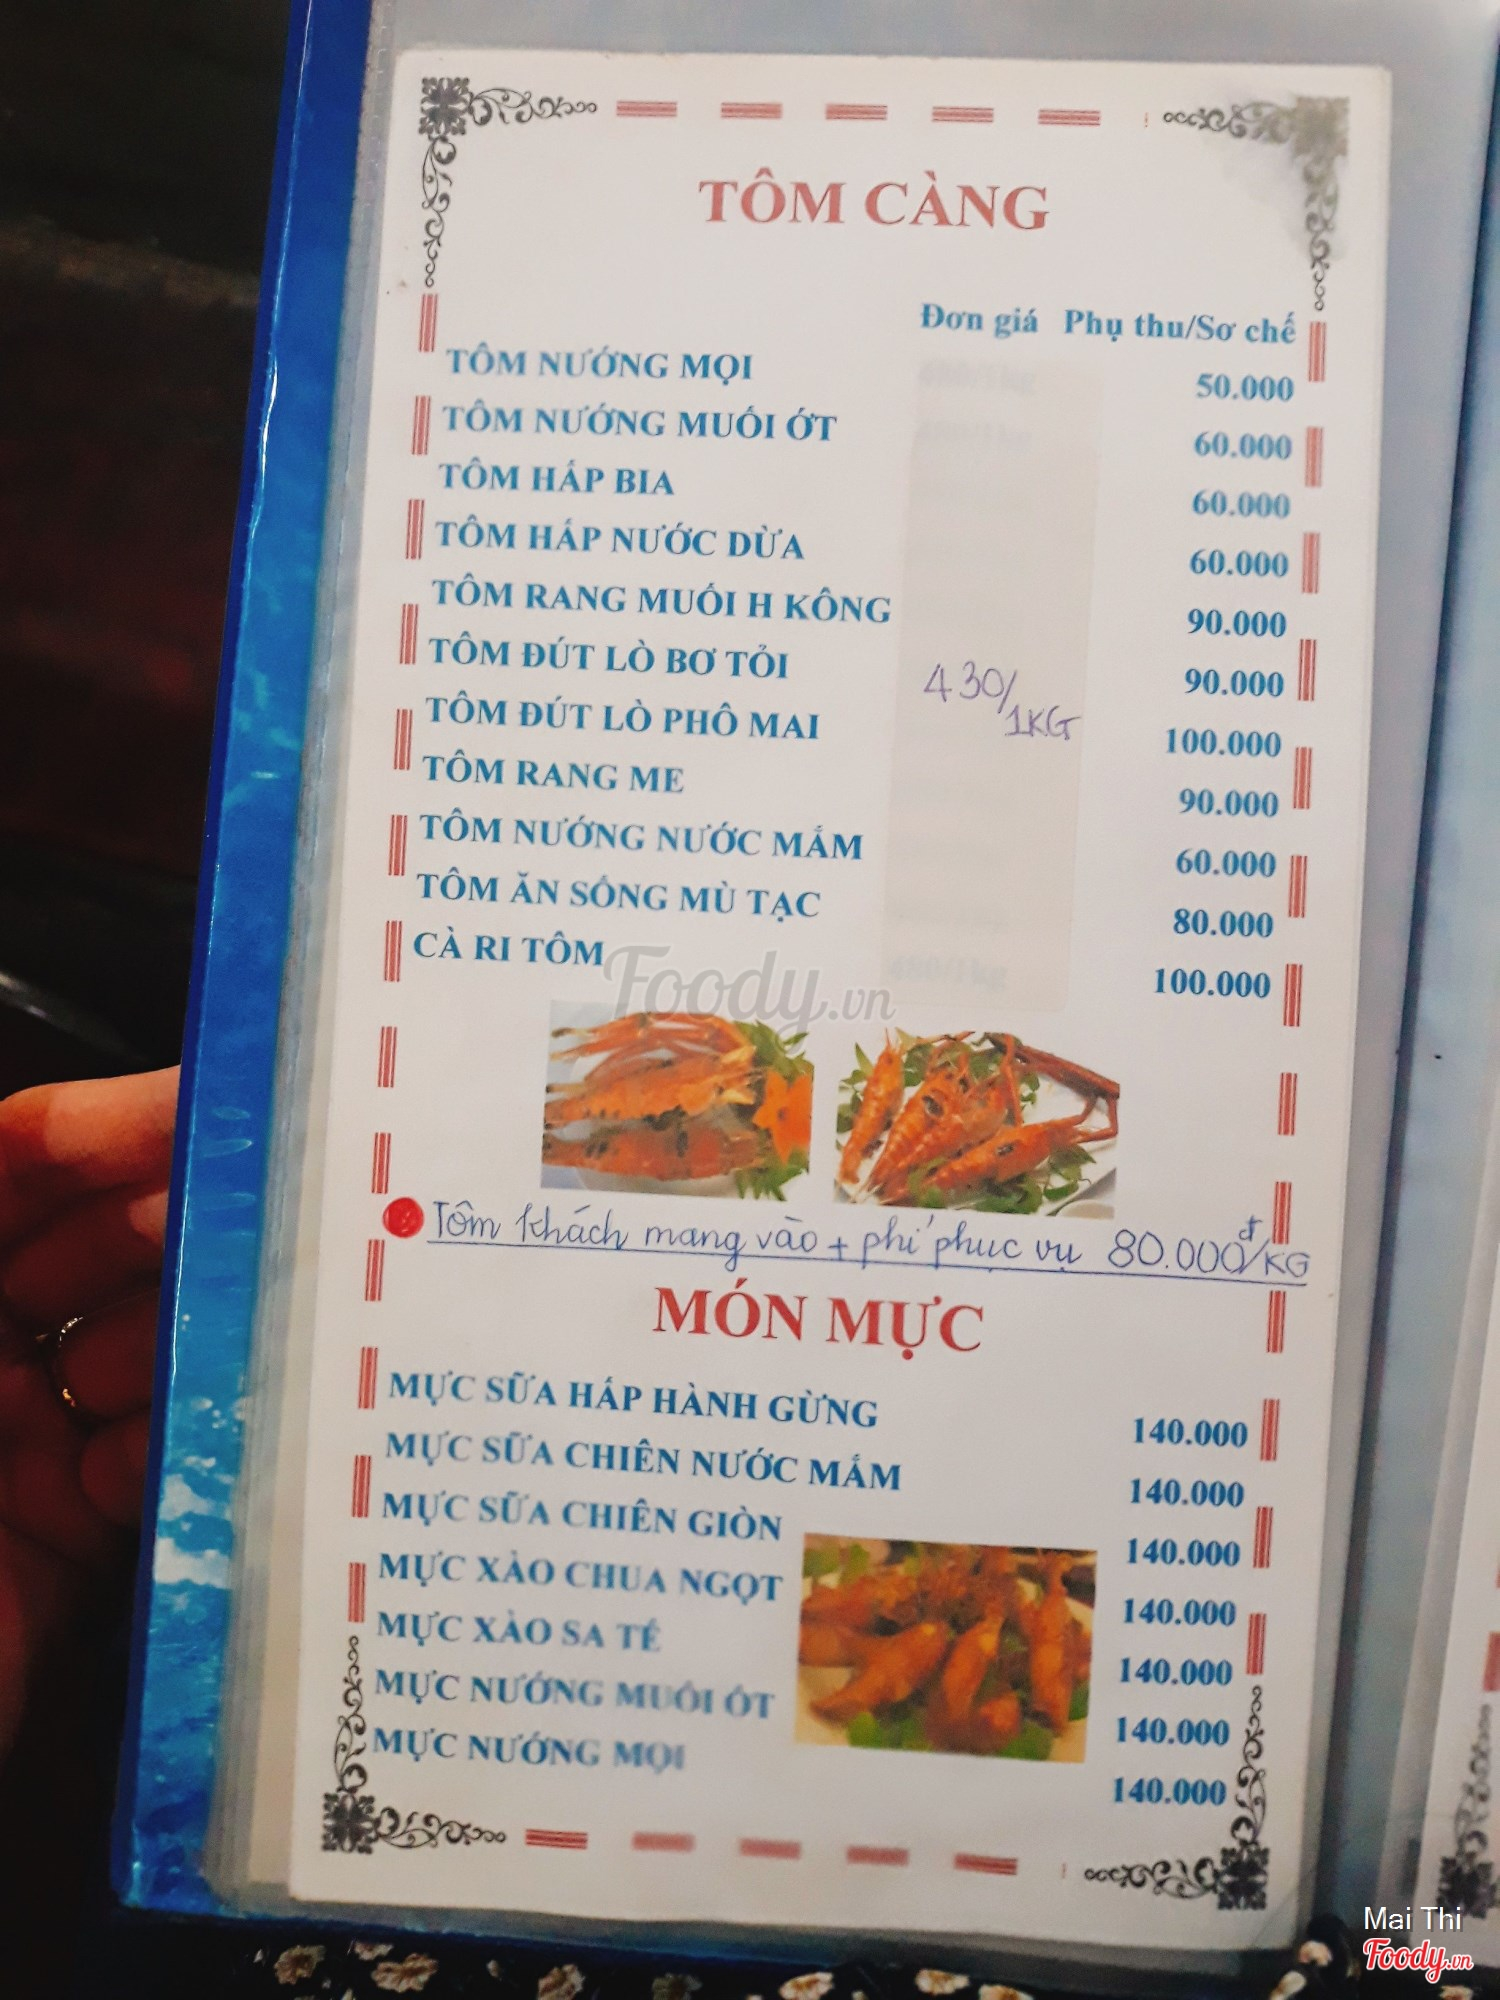 TÔM CÀNG
Đơn giá Phụ thu/Sơ chế
TÔM NƯỚNG MỌI 50.000
TÔM NƯỚNG MUỐI ỚT 60.000
TÔM HẤP BIA 60.000
TÔM HẤP NƯỚC DỪA 60.000
TÔM RANG MUỐI H KÔNG 90.000
TÔM ĐÚT LÒ BƠ TỎI 90.000
430/1KG
TÔM ĐÚT LÒ PHÔ MAI 100.000
TÔM RANG ME 90.000
TÔM NƯỚNG NƯỚC MẮM 60.000
TÔM ĂN SỐNG MÙ TẠC 80.000
CÀ RI TÔM 100.000
Foody.vn
Tôm khách mang vào + phí phục vụ 80.000đ/KG
MÓN MỰC
MỰC SỮA HẤP HÀNH GỪNG 140.000
MỰC SỮA CHIÊN NƯỚC MẮM 140.000
MỰC SỮA CHIÊN GIÒN 140.000
MỰC XÀO CHUA NGỌT 140.000
MỰC XÀO SA TẾ 140.000
MỰC NƯỚNG MUỐI ỚT 140.000
MỰC NƯỚNG MỌI 140.000
Mai Thi
Foody.vn